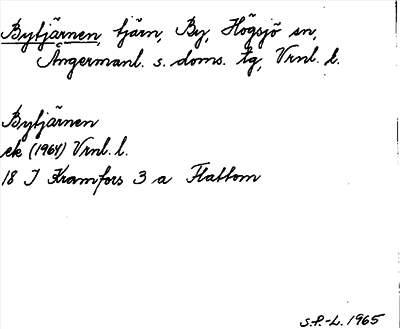 Bytjärnen, tjärn, By, Högsjö sn,
Ångermanl. s. doms. tg, Vrnl. l.
Bytjärnen
ek (1964) Vrnl. l.
18 J Kramfors 3 a Flattom
S.P.-L. 1965